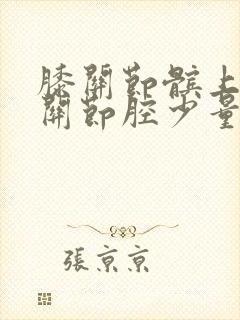 膝關節髕上
關節腔少量
張京京